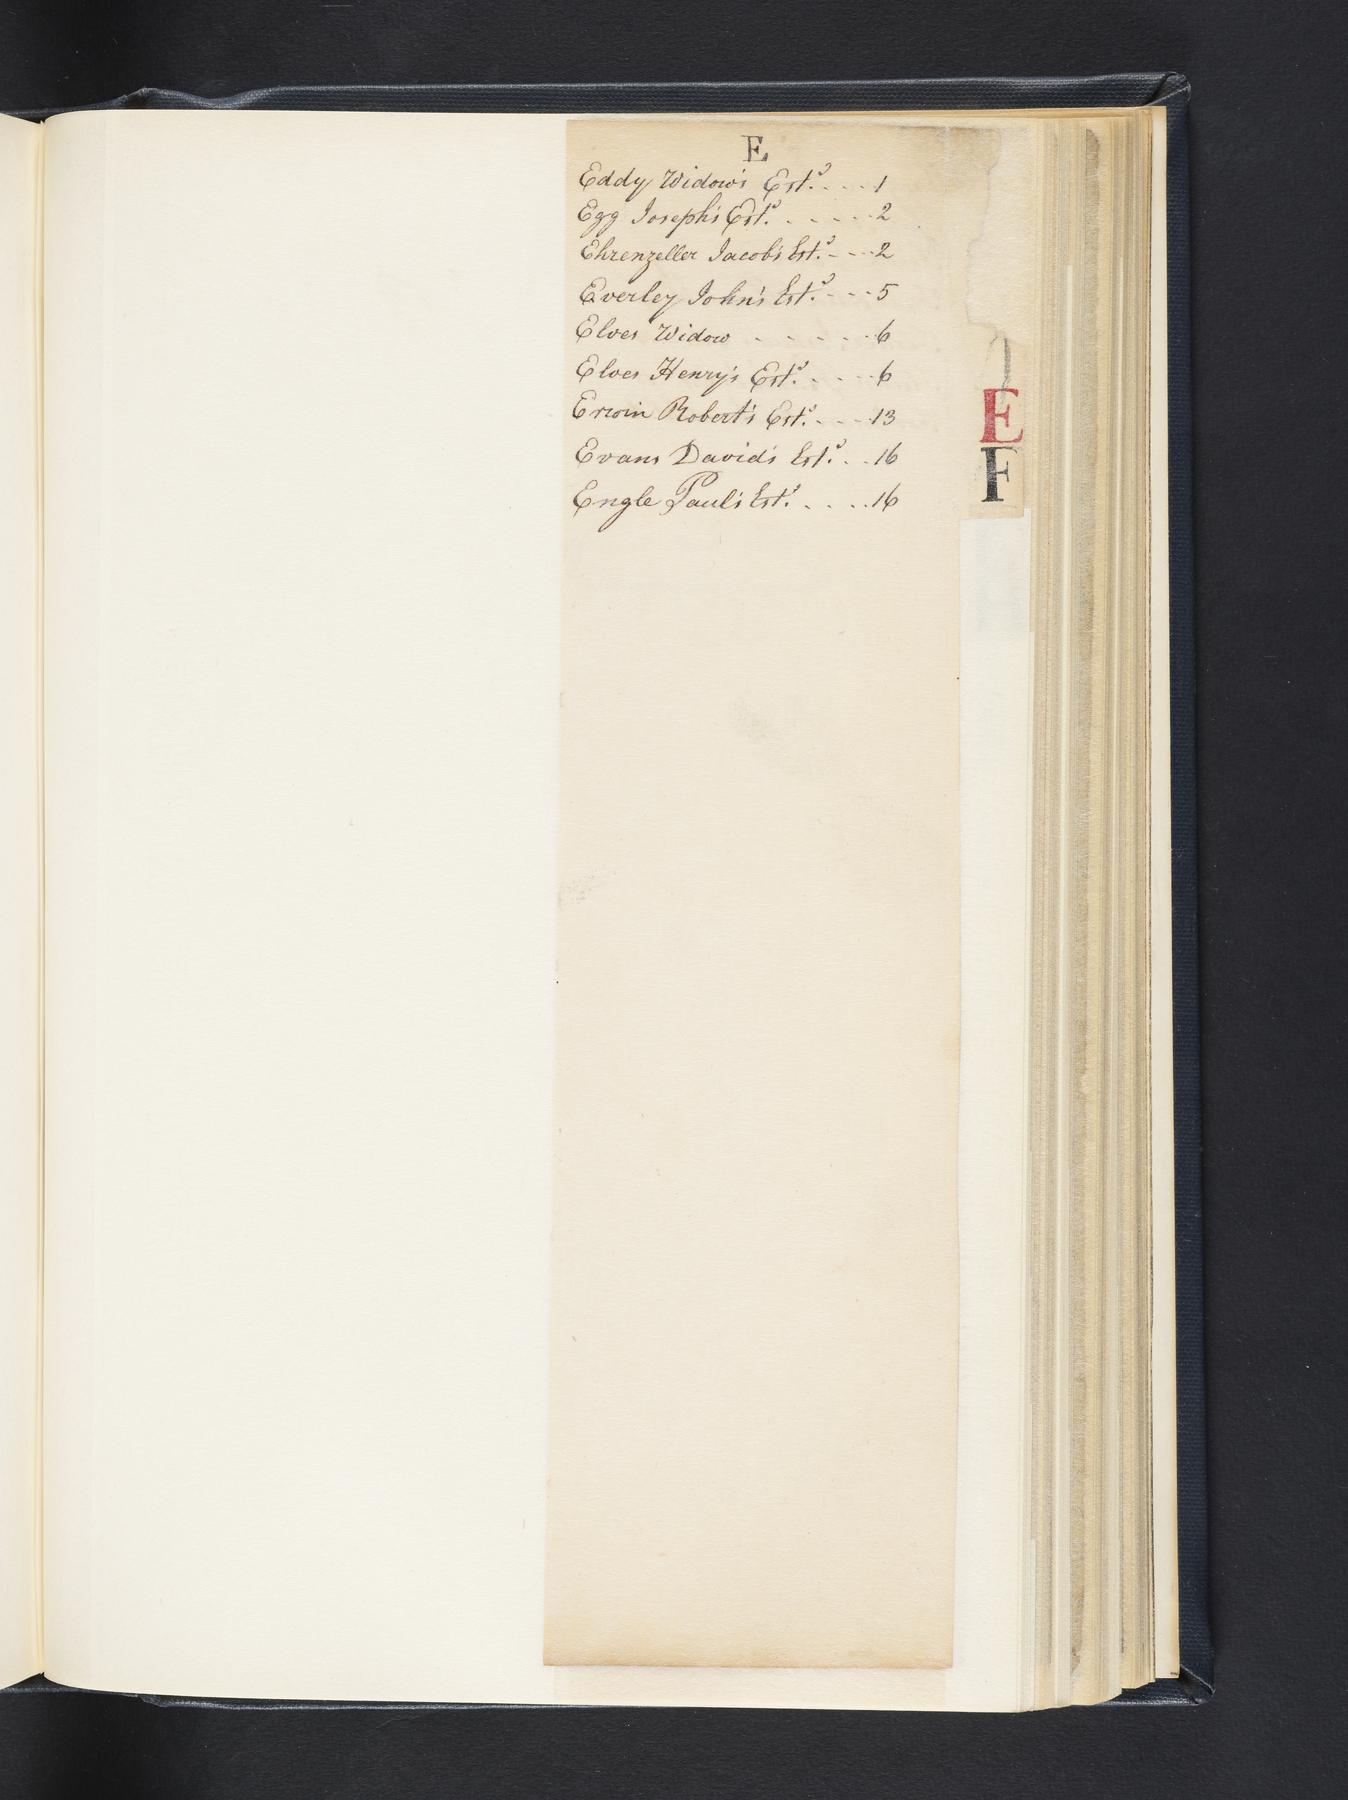 E
Eddy Widow's Est.ᵉ . . . . 1
Egg Joseph's Est.ᵉ . . . . . 2
Ehrenzeller Jacob's Est.ᵉ - - - - 2
Everley John's Est.ᵉ - - - - 5
Elves Widow - - - - - 6
Elves Henry's Est.ᵉ . . . . 6
Erwin Robert's Est.ᵉ - - - - 13
Evans David's Est.ᵉ . . 16
Engle Paul's Est.ᵉ . . . . 16
E
F